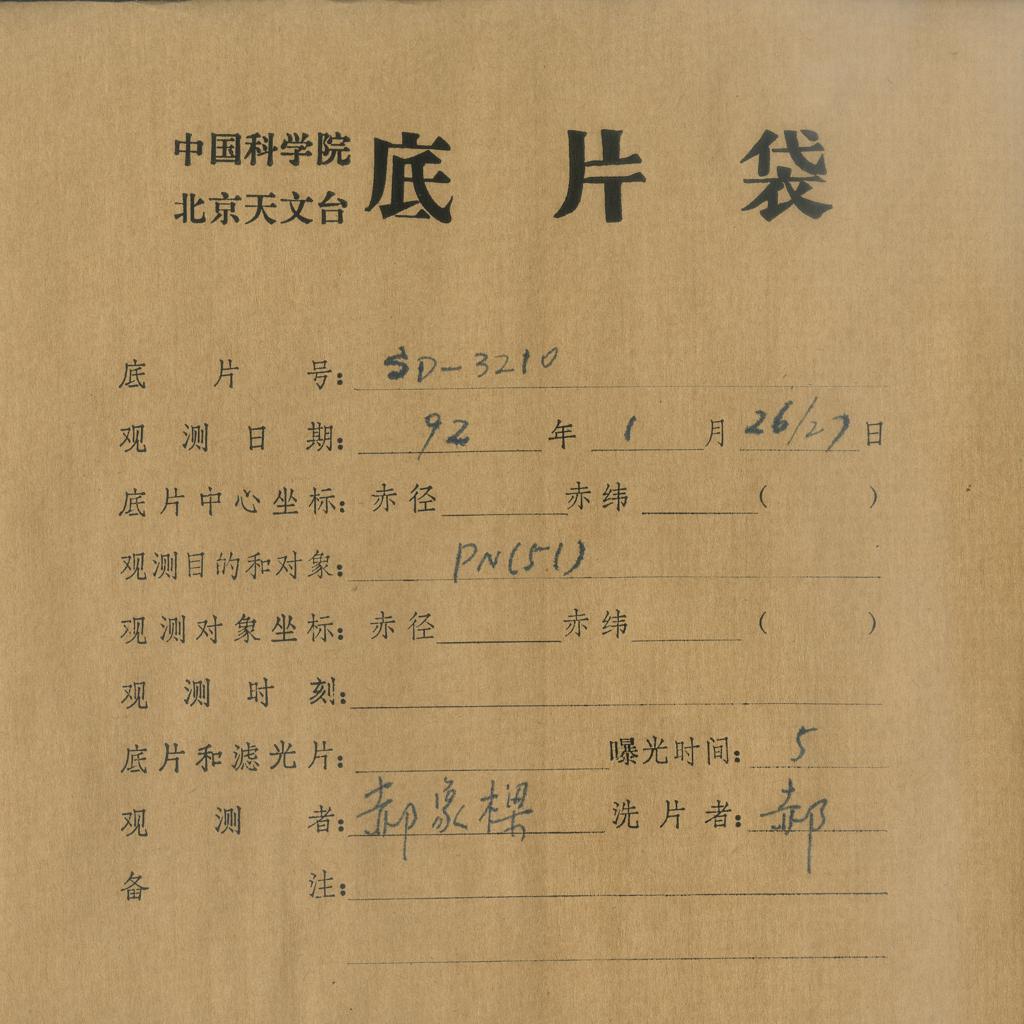 中国科学院
北京天文台
底片袋
底片号: SD-3210
观测日期: 92年1月26/27日
底片中心坐标: 赤径 赤纬 ( )
观测目的和对象: PN(51)
观测对象坐标: 赤径 赤纬 ( )
观测时刻:
底片和滤光片: 曝光时间: 5
观测者: 郝象樑 洗片者: 郝
备注: